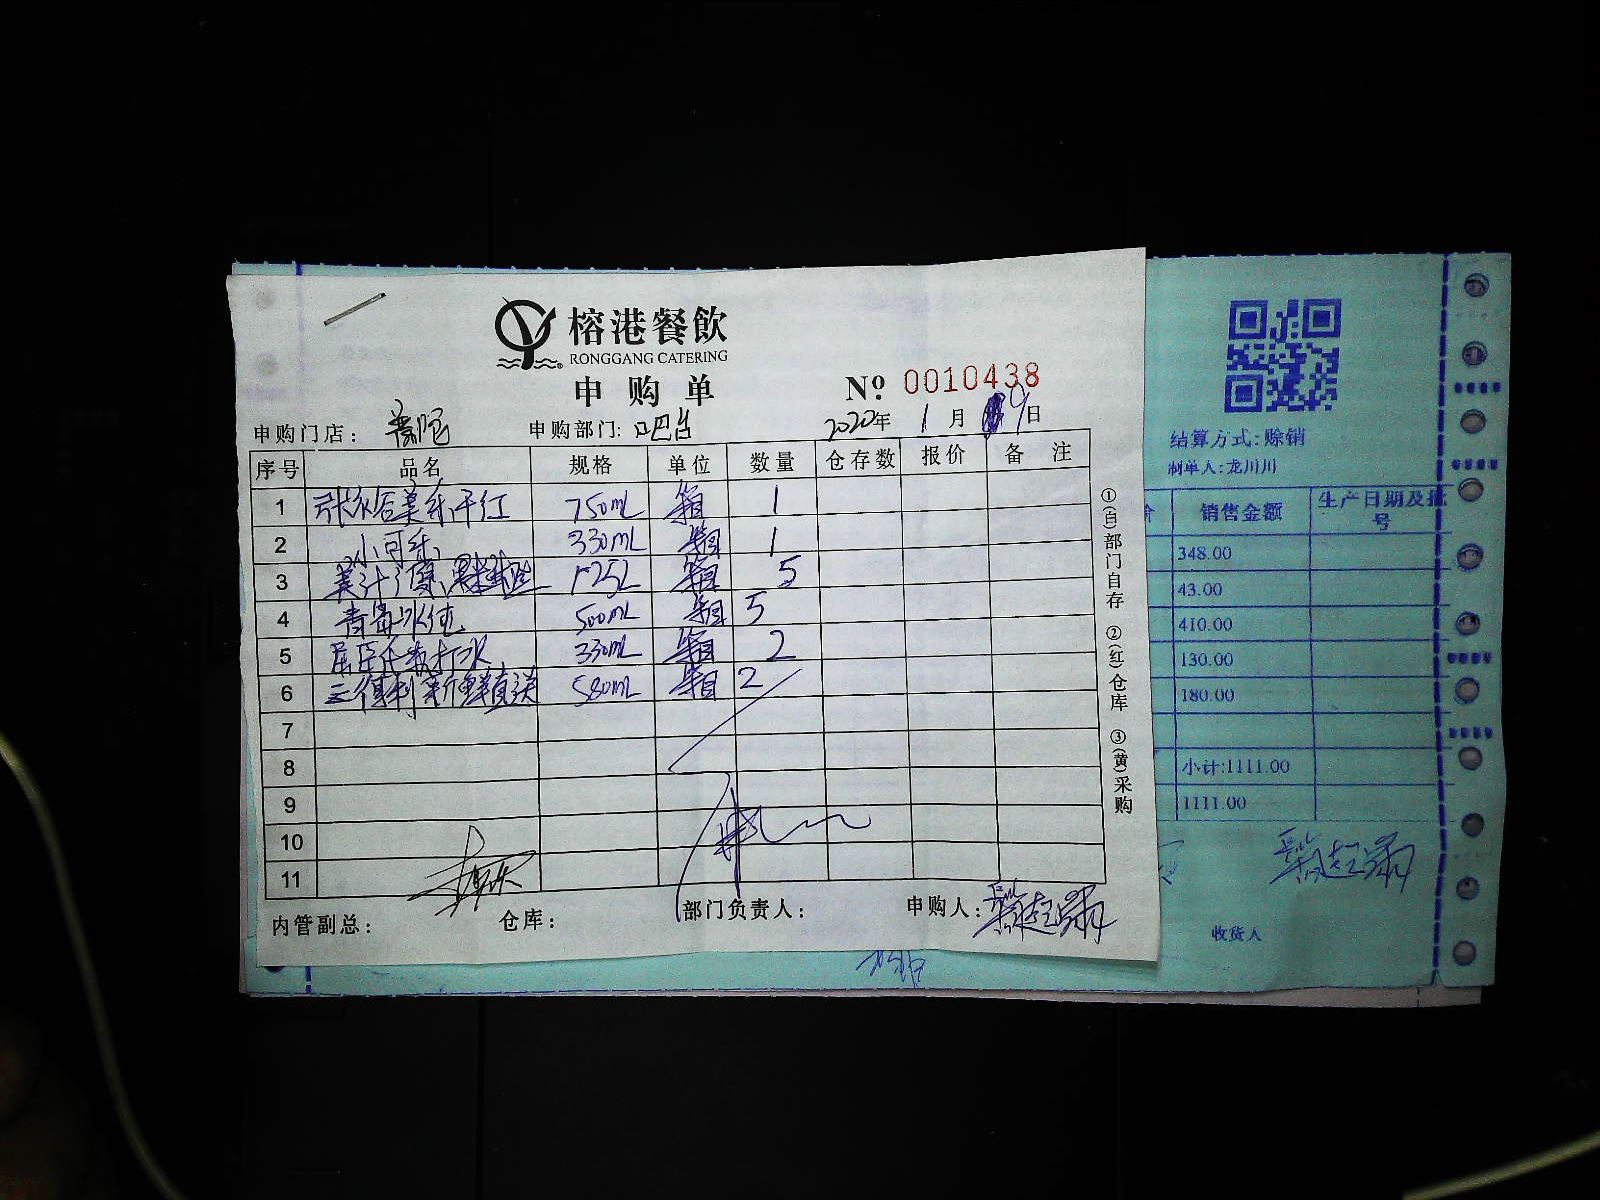 榕港餐飲
RONGGANG CATERING
申购单
Nº 0010438
申购门店: 普陀 申购部门: 吧台 2020年 1月 4日
序号 品名 规格 单位 数量 仓存数 报价 备注
1 750mL 箱 1
2 小可乐 330mL 箱 1
3 1.25L 箱 5
4 青岛冰纯 500mL 箱 5
5 屈臣氏苏打水 330mL 箱 2
6 三得利 580mL 箱 2
7
8
9
10
11
内管副总: 仓库: 部门负责人: 申购人:
①(白)部门自存 ②(红)仓库 ③(黄)采购
结算方式:赊销
制单人:龙川川
价 销售金额 生产日期及批号
348.00
43.00
410.00
130.00
180.00
小计:1111.00
1111.00
收货人